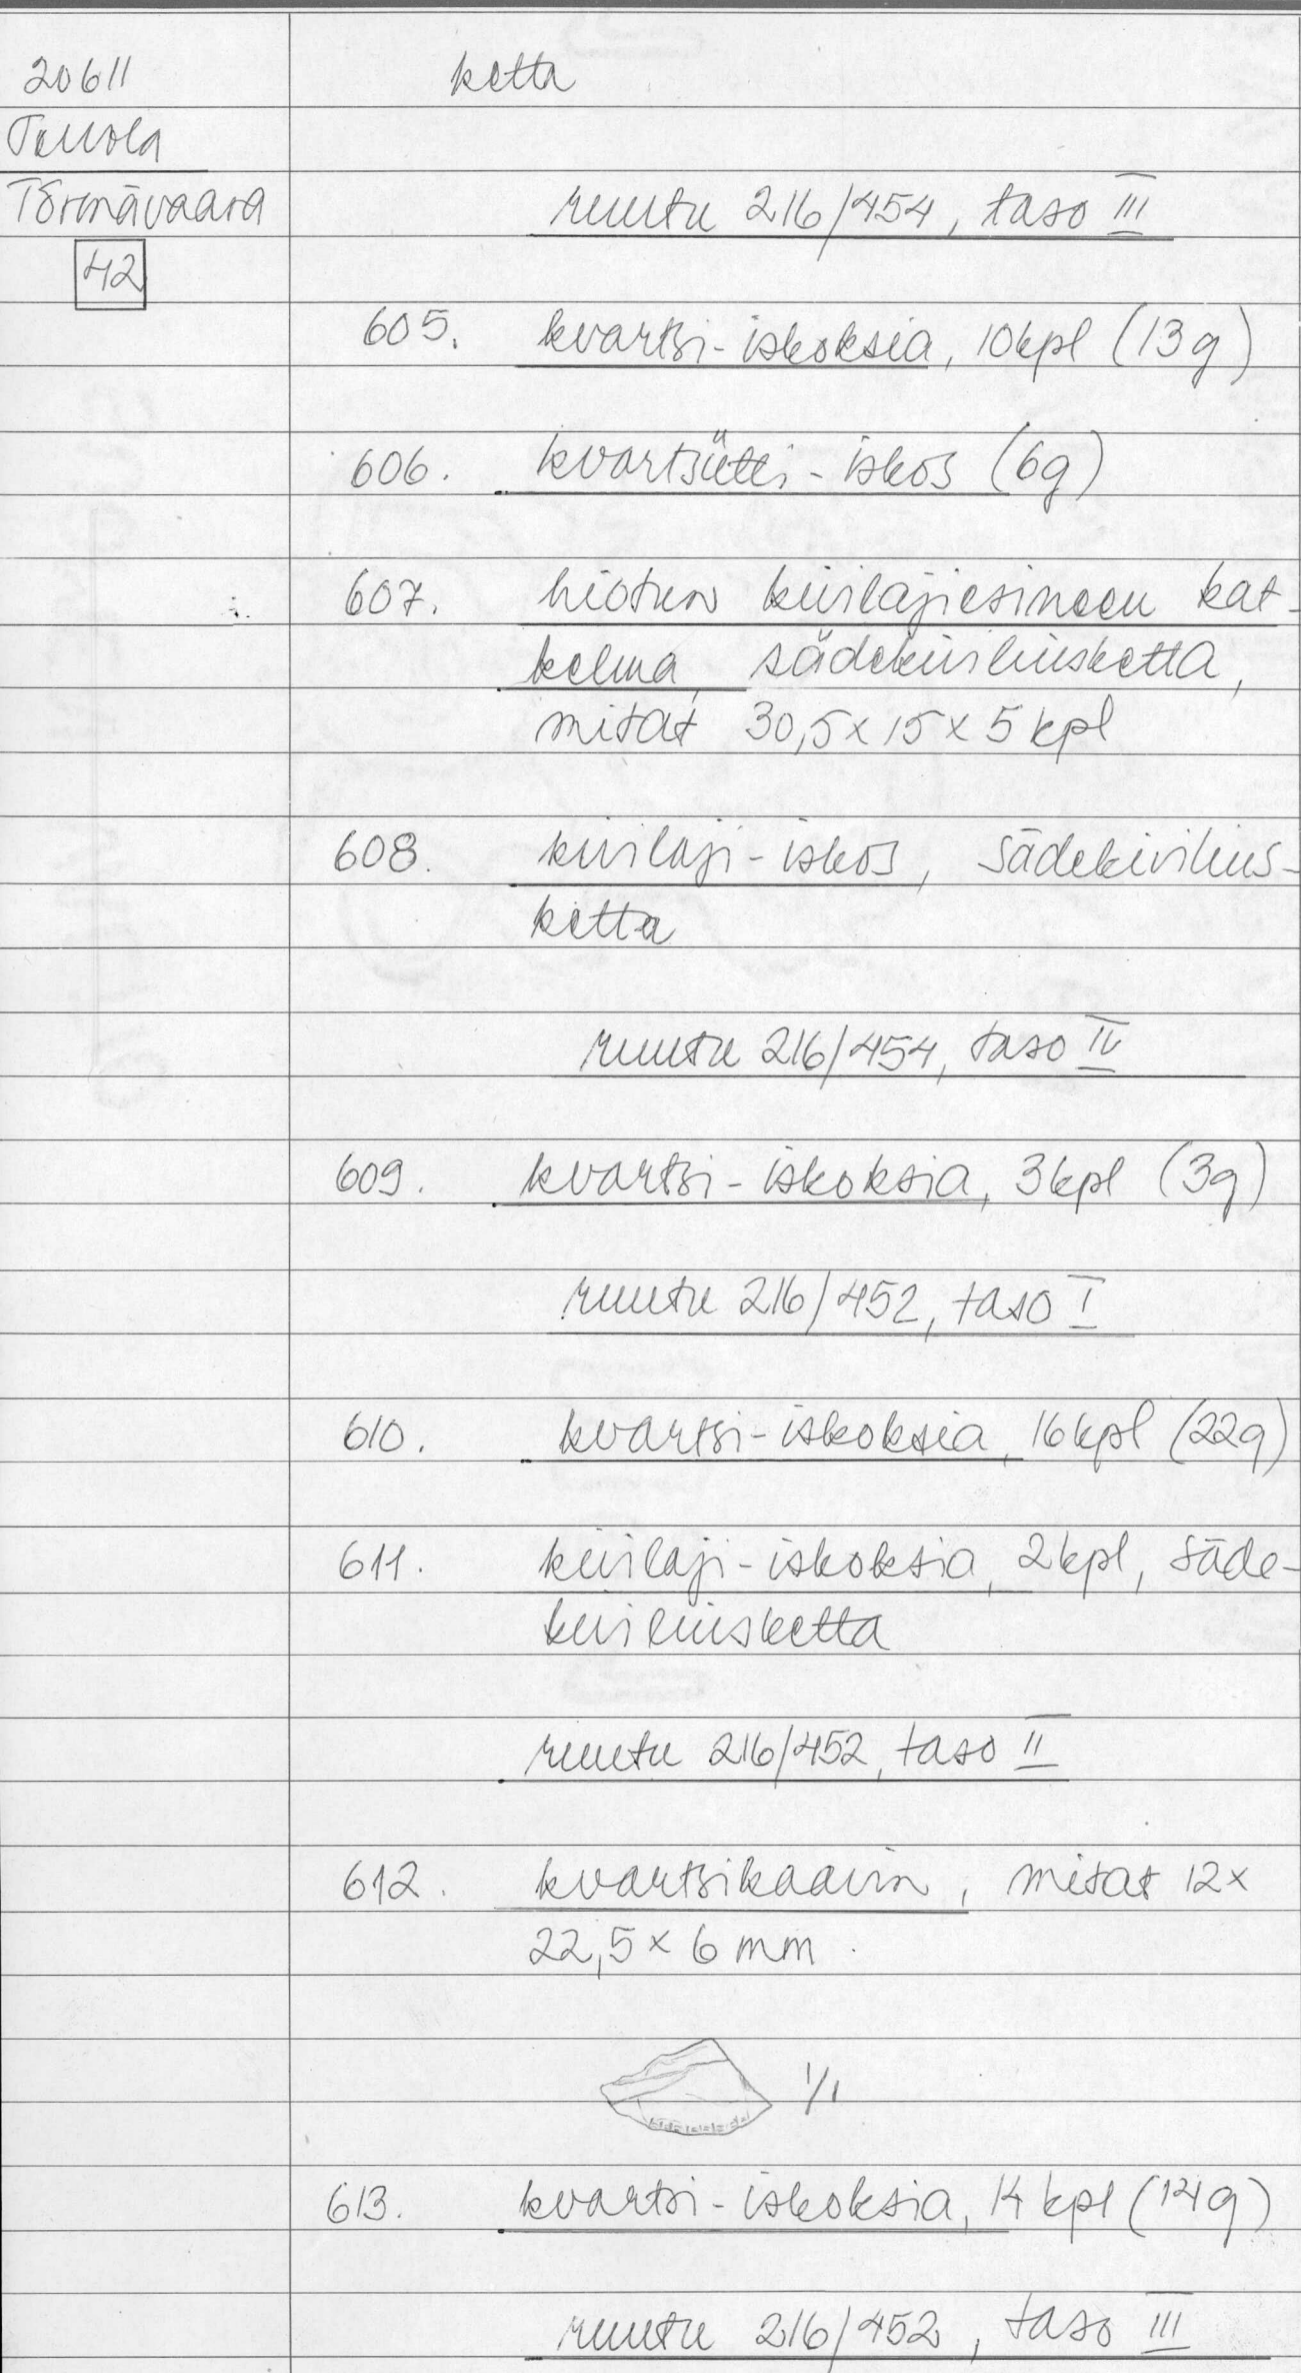 20611
ketta
Tervola
Törmävaara
42
ruutu 216/454, taso III
605. kvartsi-iskoksia, 10kpl (13g)
606. kvartsiitti-iskos (6g)
607. hiotun kivilajiesineen kat-
kelma, sädekiviliusketta,
mitat 30,5x15x5 kpl
608. kivilaji-iskos, sädekivilius-
ketta
ruutu 216/454, taso IV
609. kvartsi-iskoksia, 3kpl (3g)
ruutu 216/452, taso I
610. kvartsi-iskoksia, 16kpl (22g)
611. kivilaji-iskoksia, 2kpl, säde-
kiviliusketta
ruutu 216/452, taso II
612. kvartsikaavin, mitat 12x
22,5x6 mm.
1/1
613. kvartsi-iskoksia, 14 kpl (14g)
ruutu 216/452, taso III